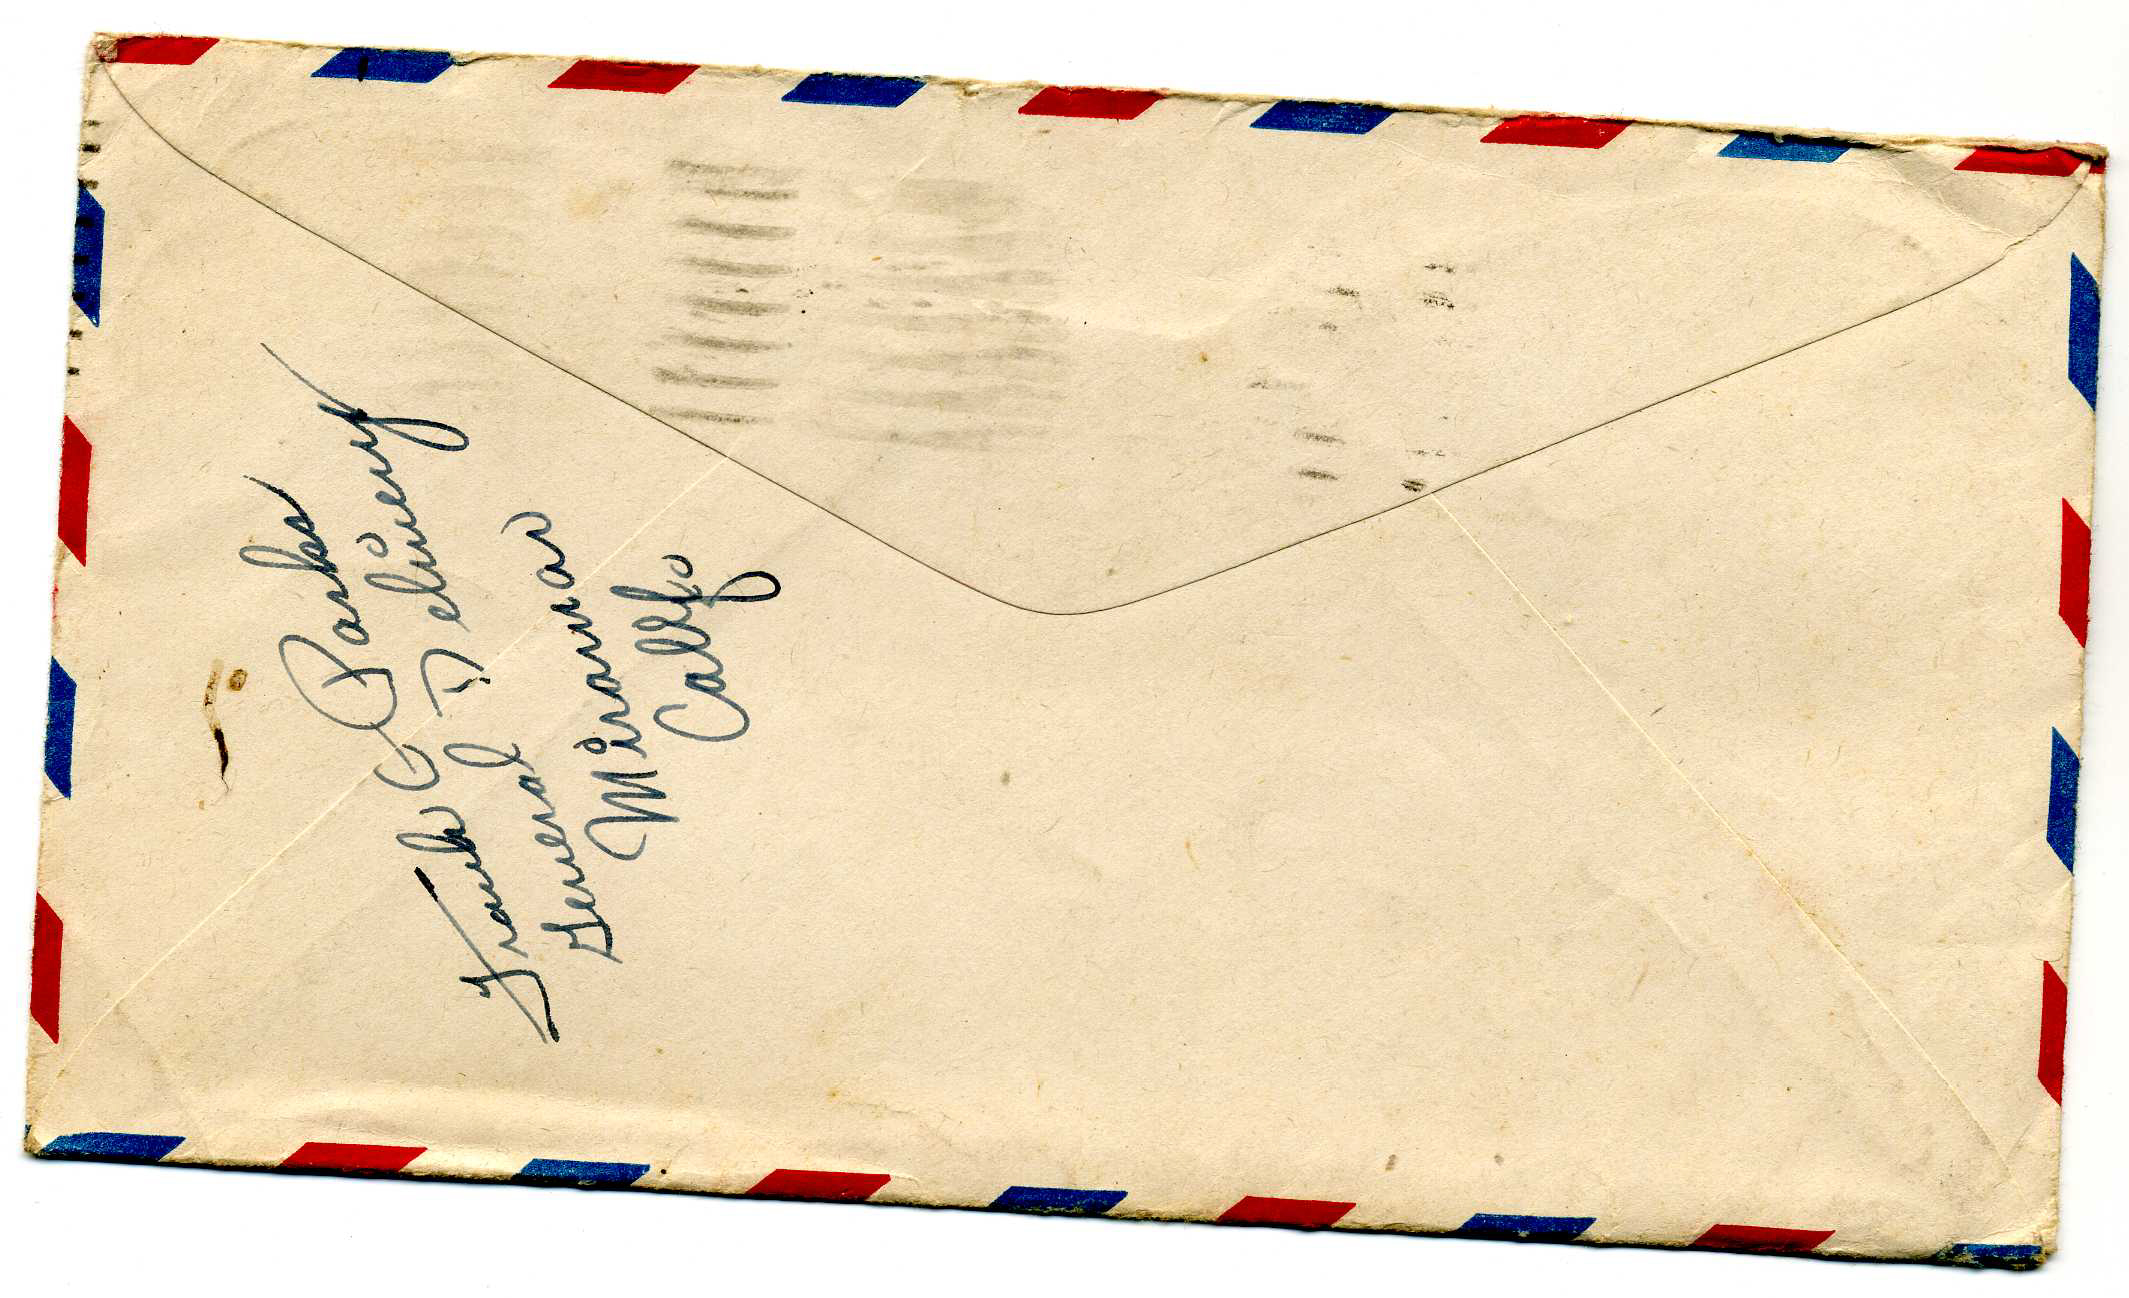 Frank C Parks
General Delivery
Miramar
Calif